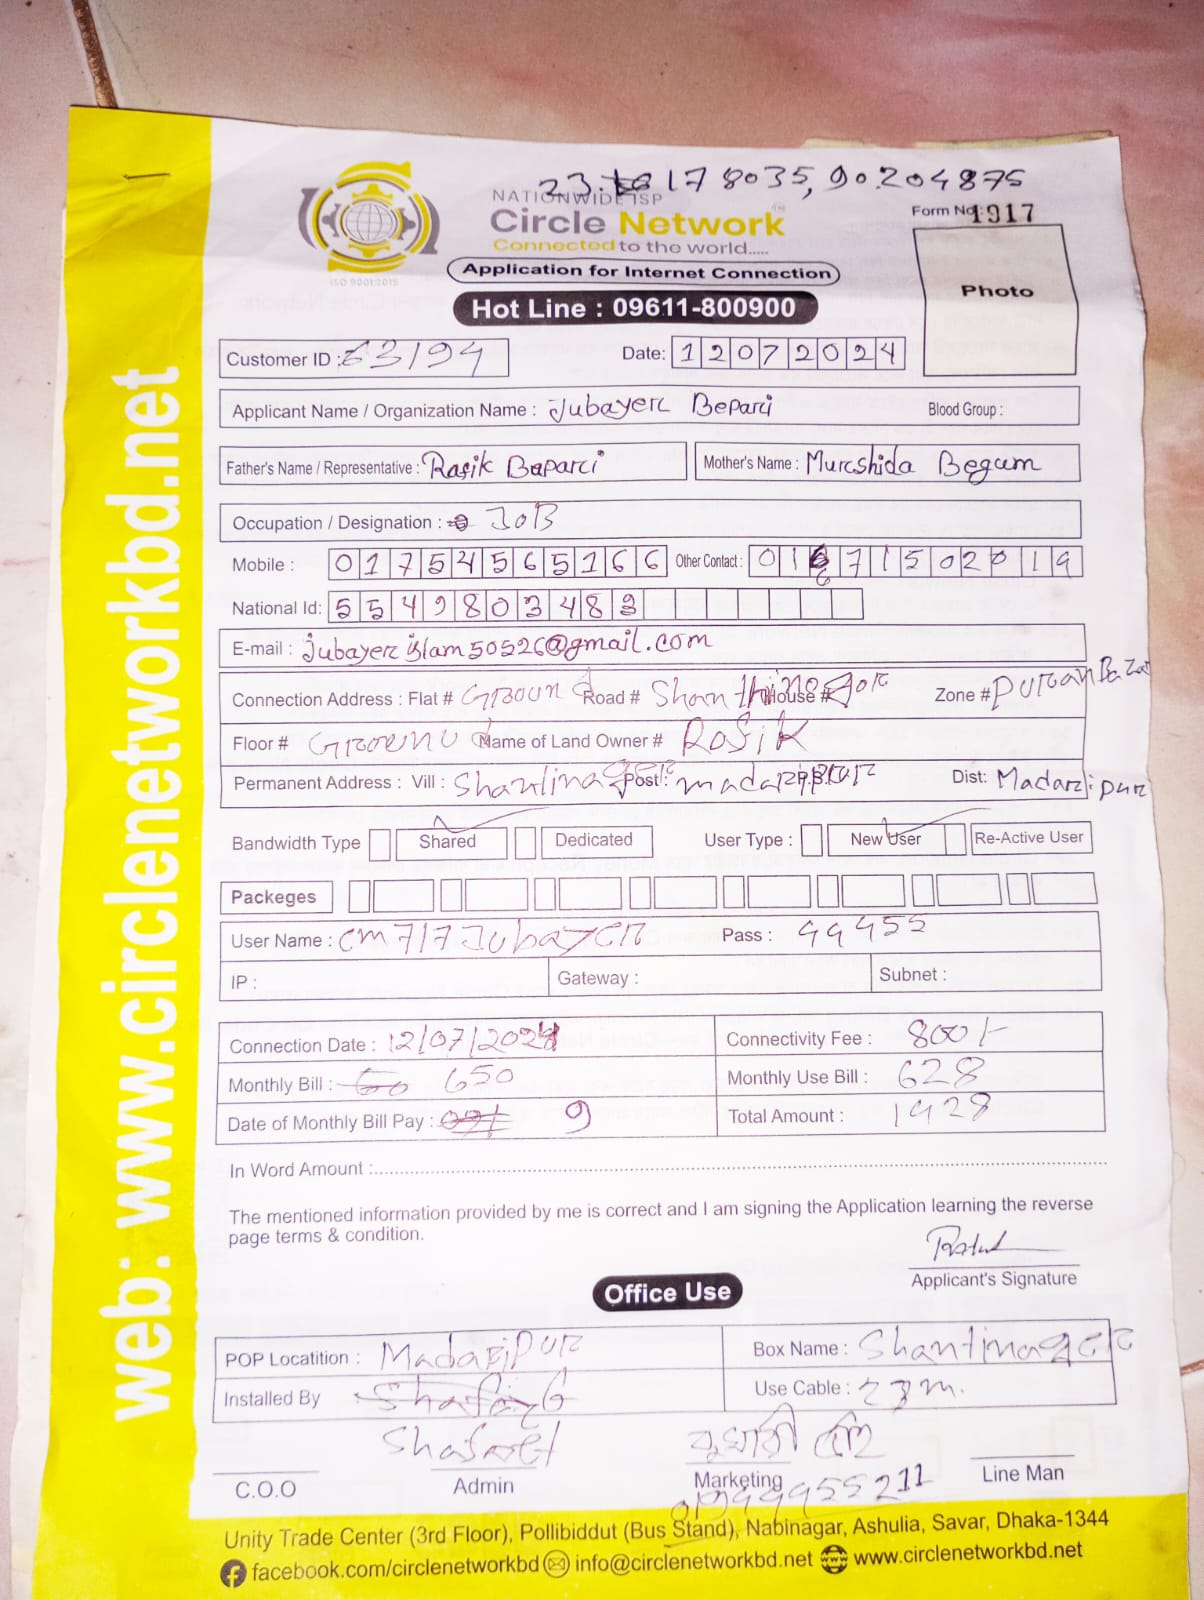 23.178035, 90.204875
NATIONWIDE ISP
Circle Network
Connected to the world.....
ISO 9001:2015
Form No: 1917
Application for Internet Connection
Hot Line : 09611-800900
Photo
Customer ID : 63194
Date: 12072024
Applicant Name / Organization Name : Jubayer Bepari
Blood Group :
Father's Name / Representative : Rasik Bapari
Mother's Name : Murshida Begum
Occupation / Designation : JOB
Mobile : 01754565166 Other Contact : 01671502019
National Id: 5549803483
E-mail : jubayerislam50526@gmail.com
Connection Address : Flat # Ground Road # Shanthinagor House # Zone # Puran Bazar
Floor # Ground Name of Land Owner # Rasik
Permanent Address : Vill : Shantinagor Post : madaripur P.S. : Dist: Madaripur
Bandwidth Type Shared Dedicated User Type : New User Re-Active User
Packeges
User Name : cm717Jubayer Pass : 99955
IP : Gateway : Subnet :
Connection Date : 12/07/2024 Connectivity Fee : 800/-
Monthly Bill : 650 Monthly Use Bill : 628
Date of Monthly Bill Pay : 9 Total Amount : 1428
In Word Amount :
The mentioned information provided by me is correct and I am signing the Application learning the reverse
page terms & condition.
Applicant's Signature
Office Use
POP Locatition : Madaripur Box Name : Shantinagor
Installed By Use Cable : 23m.
C.O.O Admin Marketing Line Man
01999955211
Unity Trade Center (3rd Floor), Pollibiddut (Bus Stand), Nabinagar, Ashulia, Savar, Dhaka-1344
facebook.com/circlenetworkbd info@circlenetworkbd.net www.circlenetworkbd.net
web: www.circlenetworkbd.net